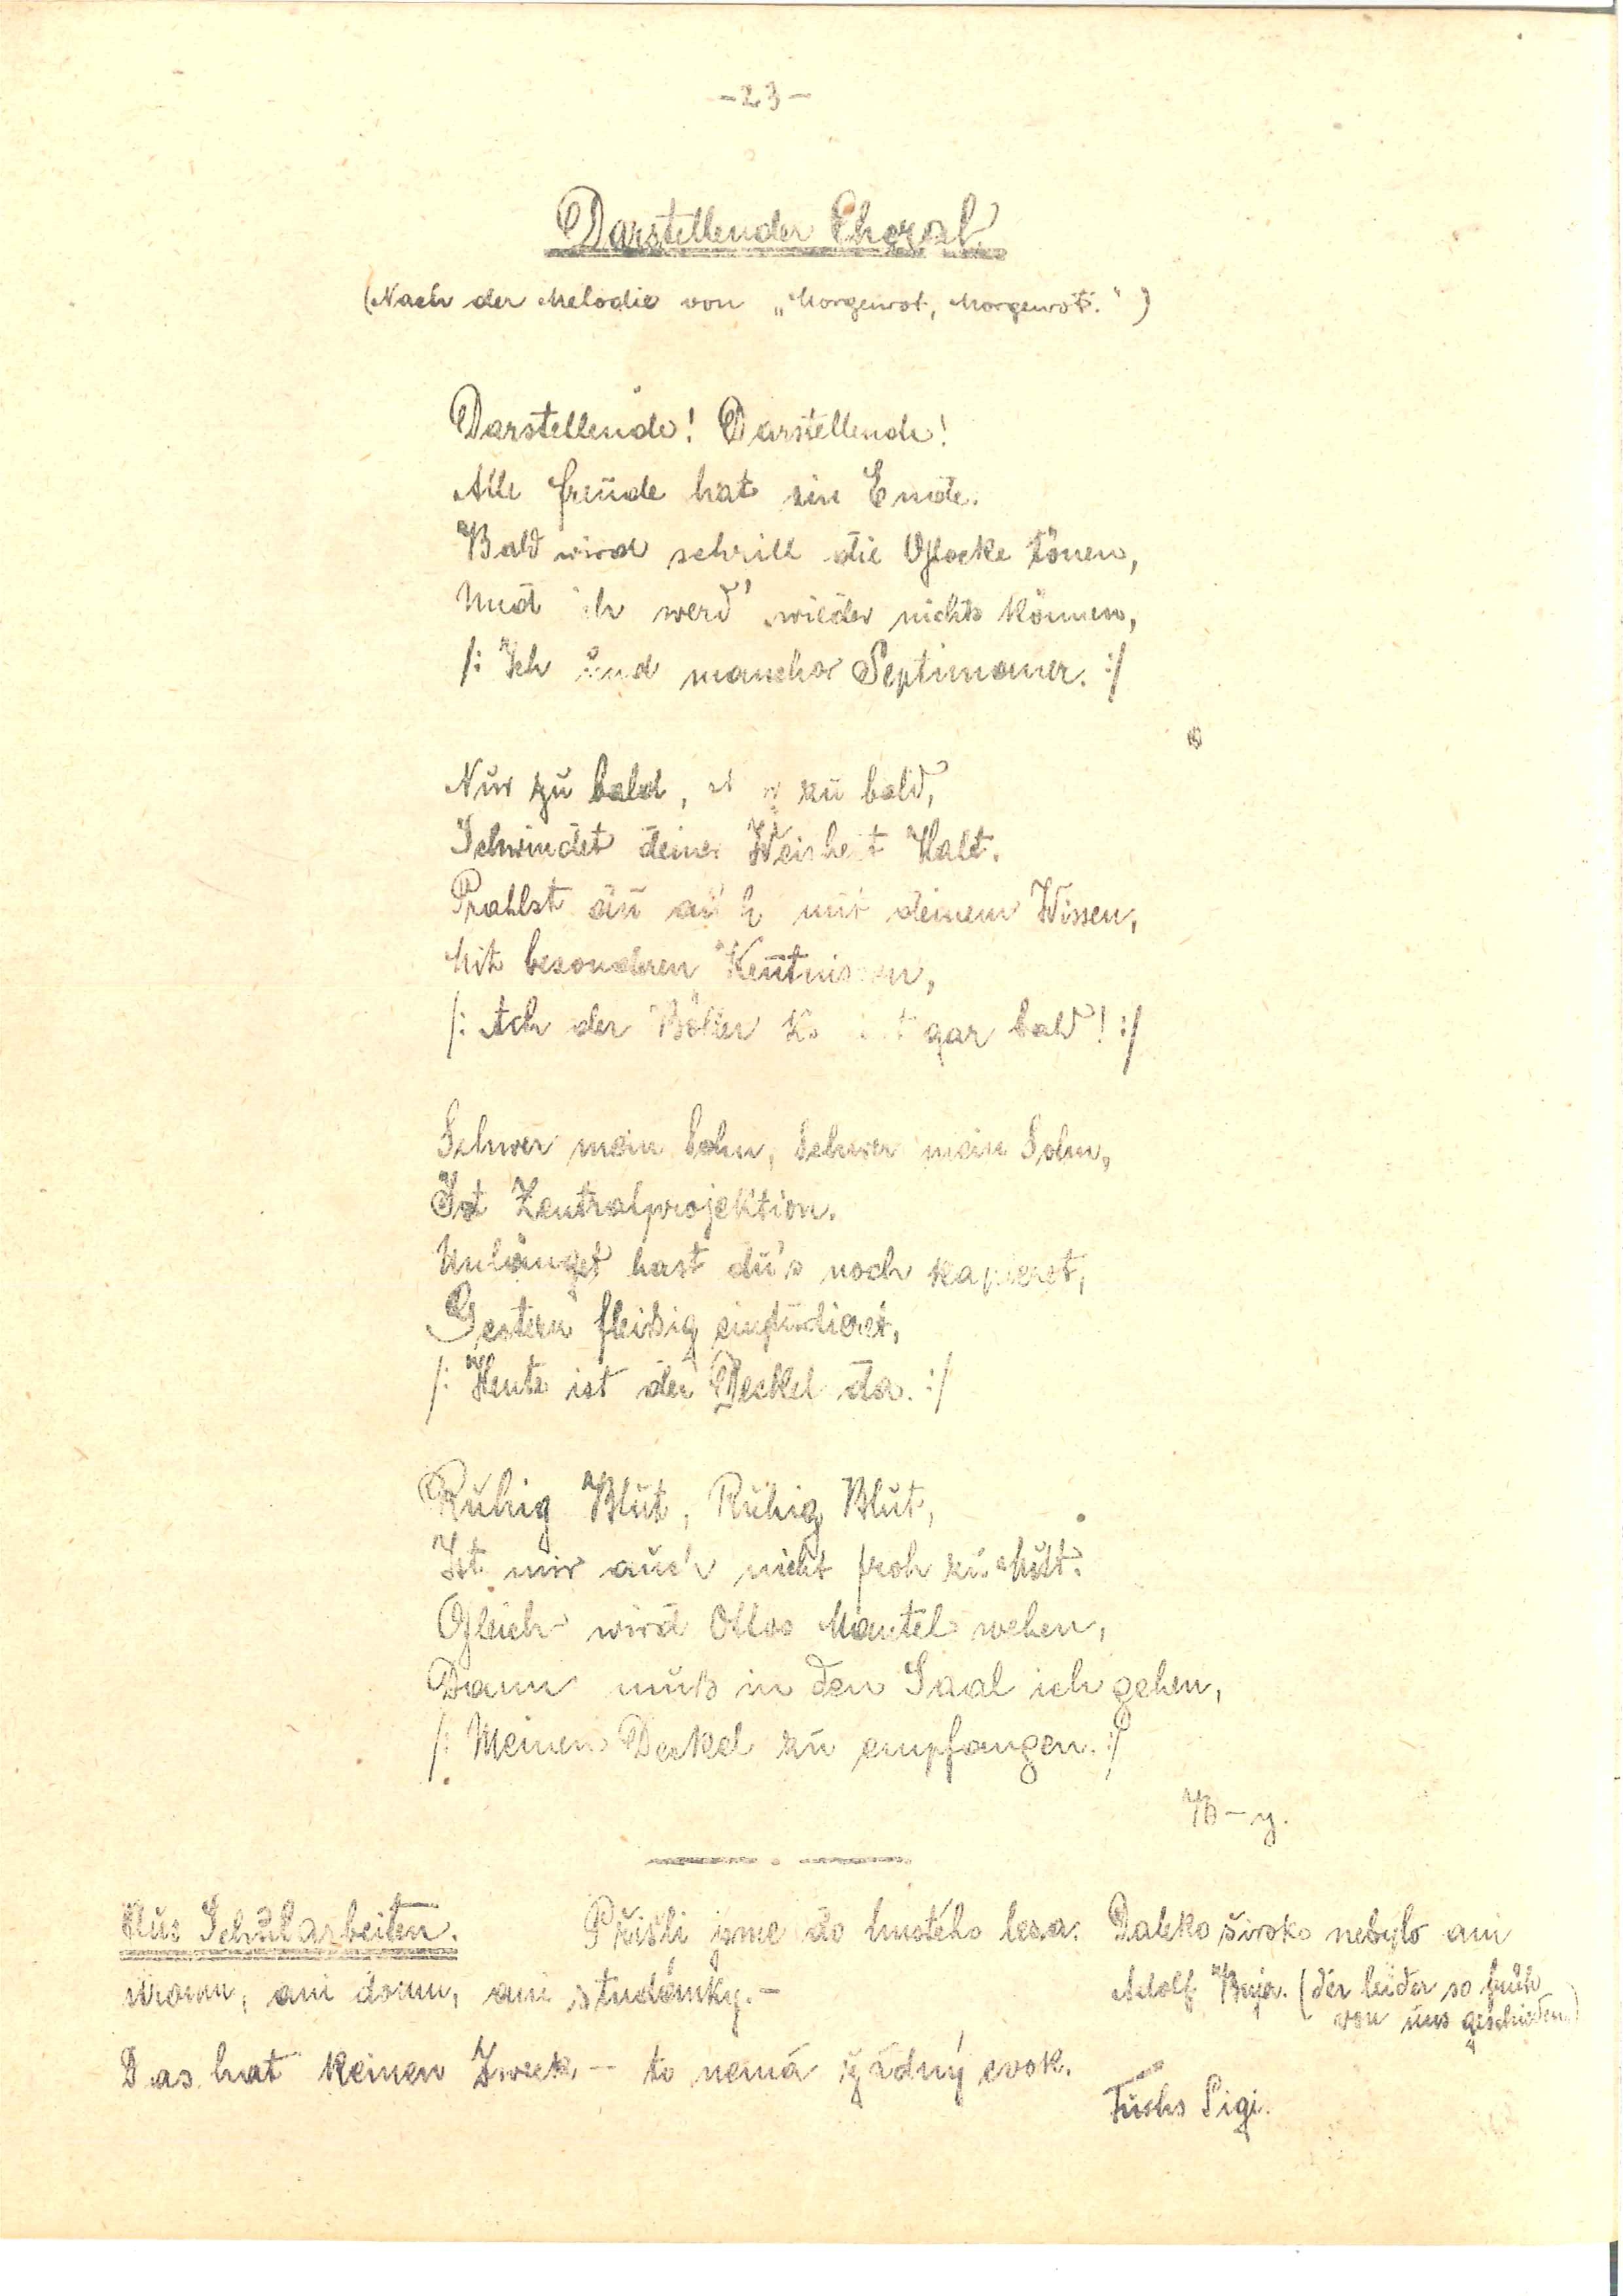 -23-
Darstellender Choral.
(Nach der Melodie von „Morgenrot, Morgenrot.")
Darstellende! Darstellende!
Alle Freude hat ein Ende.
Bald wird schrill die Glocke tönen,
Und ich werd' wieder nichts können,
/: Ich und mancher Septimaner. :/
Nur zu bald, zu bald,
Schwindet deiner Weisheit Halt.
Prahlst du auch mit deinem Wissen,
Mit besondren Kentnissen,
/: Ach der gar bald! :/
Schwer mein Sohn, schwer mein Sohn,
Ist Zentralprojektion.
Unlängst hast du's noch kapieret,
Gestern fleißig
/: Heute ist der Deckel da. :/
Ruhig Blut, Ruhig Blut,
Ist mir auch nicht froh zu Mut.
Gleich wird Ottos Mantel wehen,
Dann muß in den Saal ich gehen,
/: Meinen Deckel zu empfangen. :/
B-y.
Aus Schularbeiten. Přišli jsme do hustého lesa. Daleko široko nebylo ani
stromu, ani domu, ani studánky.- Adolf (der leider so früh
von uns geschieden.)
Das hat keinen Zweck - to nemá žádný cvok.
Fuchs Sigi.